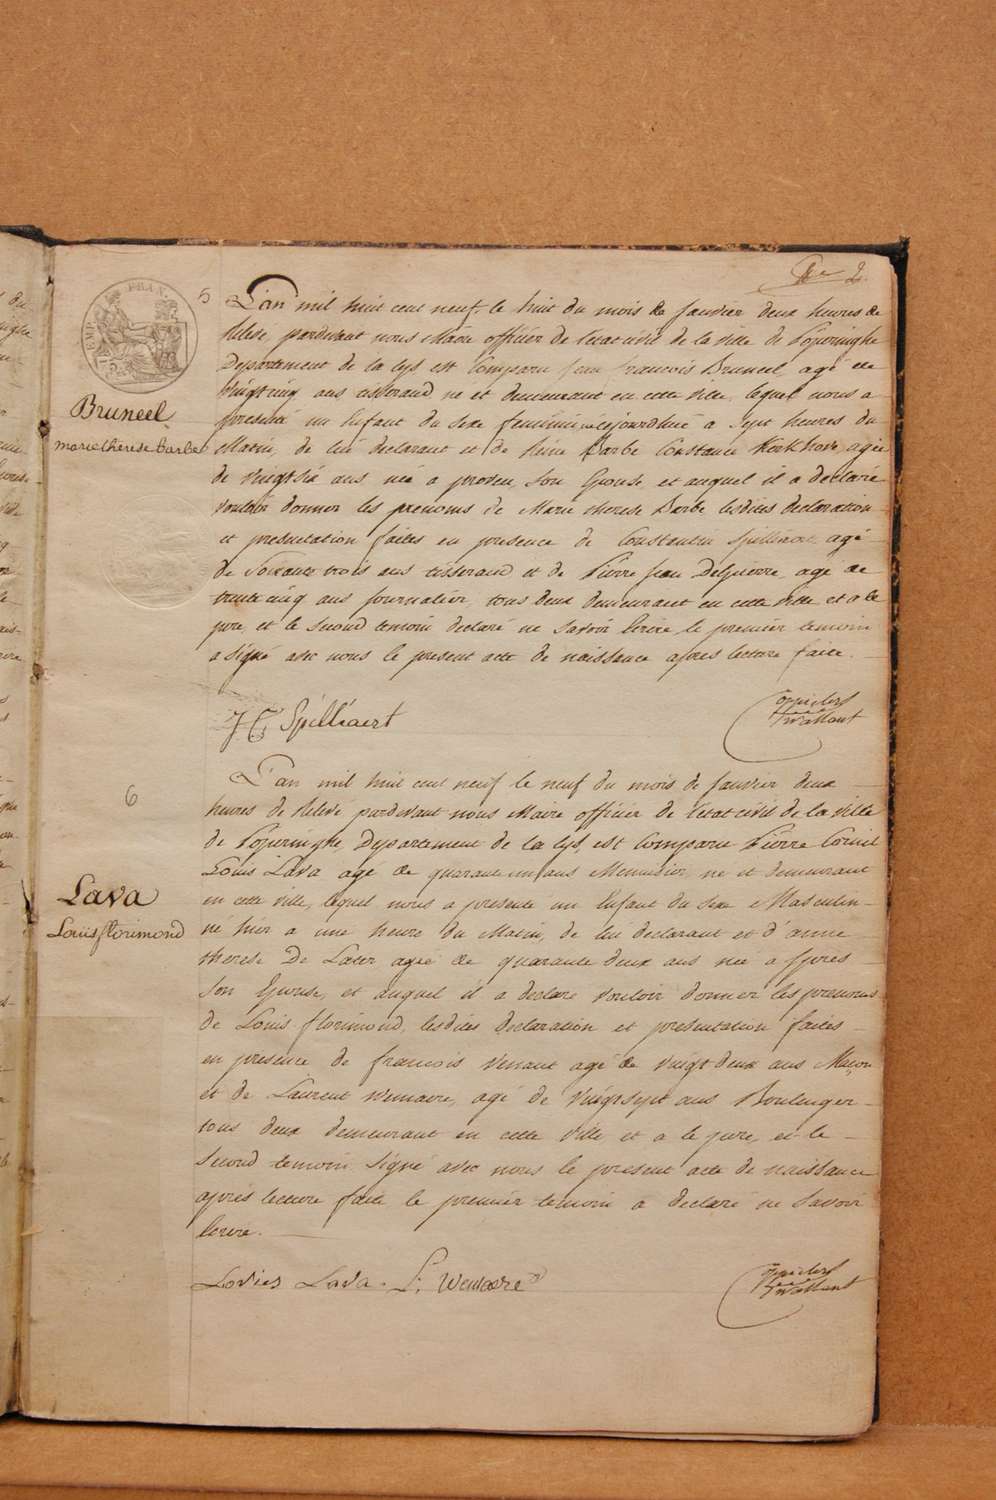 2.
TIMP. FRAN.
5
Bruneel
marie therese barbe
L'an mil huit cent neuf, le huit du mois de Janvier deux heures de
Relevé, pardevant nous Maire officier de l'etat civil de la ville de Poperinghe
Departement de la lys est Comparu jean francois Bruneel, agé de
vingtcinq ans tisserand né et demeurant en cette ville, lequel nous a
presenté un Enfant du sexe feminin, né cejourdhui a sept heures du
Matin, de lui declarant et de Barbe Constance Kerkhove, agée
de vingtsix ans née a proven, son Epouse et auquel il a declaré
vouloir donner les prenoms de Marie therese Barbe lesdites declaration
et presentation faites en presence de Constantin Spilliaert agé
de Soixante trois ans tisserand et de Pierre jean Delguerre, agé de
trente cinq ans journalier, tous deux demeurant en cette ville et a le
pere, et le second temoin declaré ne savoir écrire, le premier temoin
a signé avec nous le present acte de naissance apres lecture faite.
J C Spilliaert
6
Lava
Louis florimond
L'an mil huit cent neuf le neuf du mois de Janvier deux
heures de Relevé pardevant nous Maire officier de l'etat civil de la ville
de Poperinghe, Departement de la lys, est Comparu Pierre Corneil
Louis Lava agé de quarante un ans Menuisier, né et demeurant
en cette ville, lequel nous a presenté un Enfant du sexe Masculin
né hier a une heure du Matin, de lui declarant et d'anne
therese De Cater agée de quarante deux ans née a Ypres
son Epouse, et auquel il a declaré vouloir donner les prenoms
de Louis florimond, lesdites declaration et presentation faites
en presence de francois Venant agé de vingt deux ans Maçon
et de Laurent Wemaere, agé de vingtsept ans Boulenger
tous deux demeurant en cette ville et a le pere, et le
second temoin signé avec nous le present acte de naissance
après lecture faite le premier temoin a declaré ne savoir
écrire.
Lovies Lava. L. Wemaere